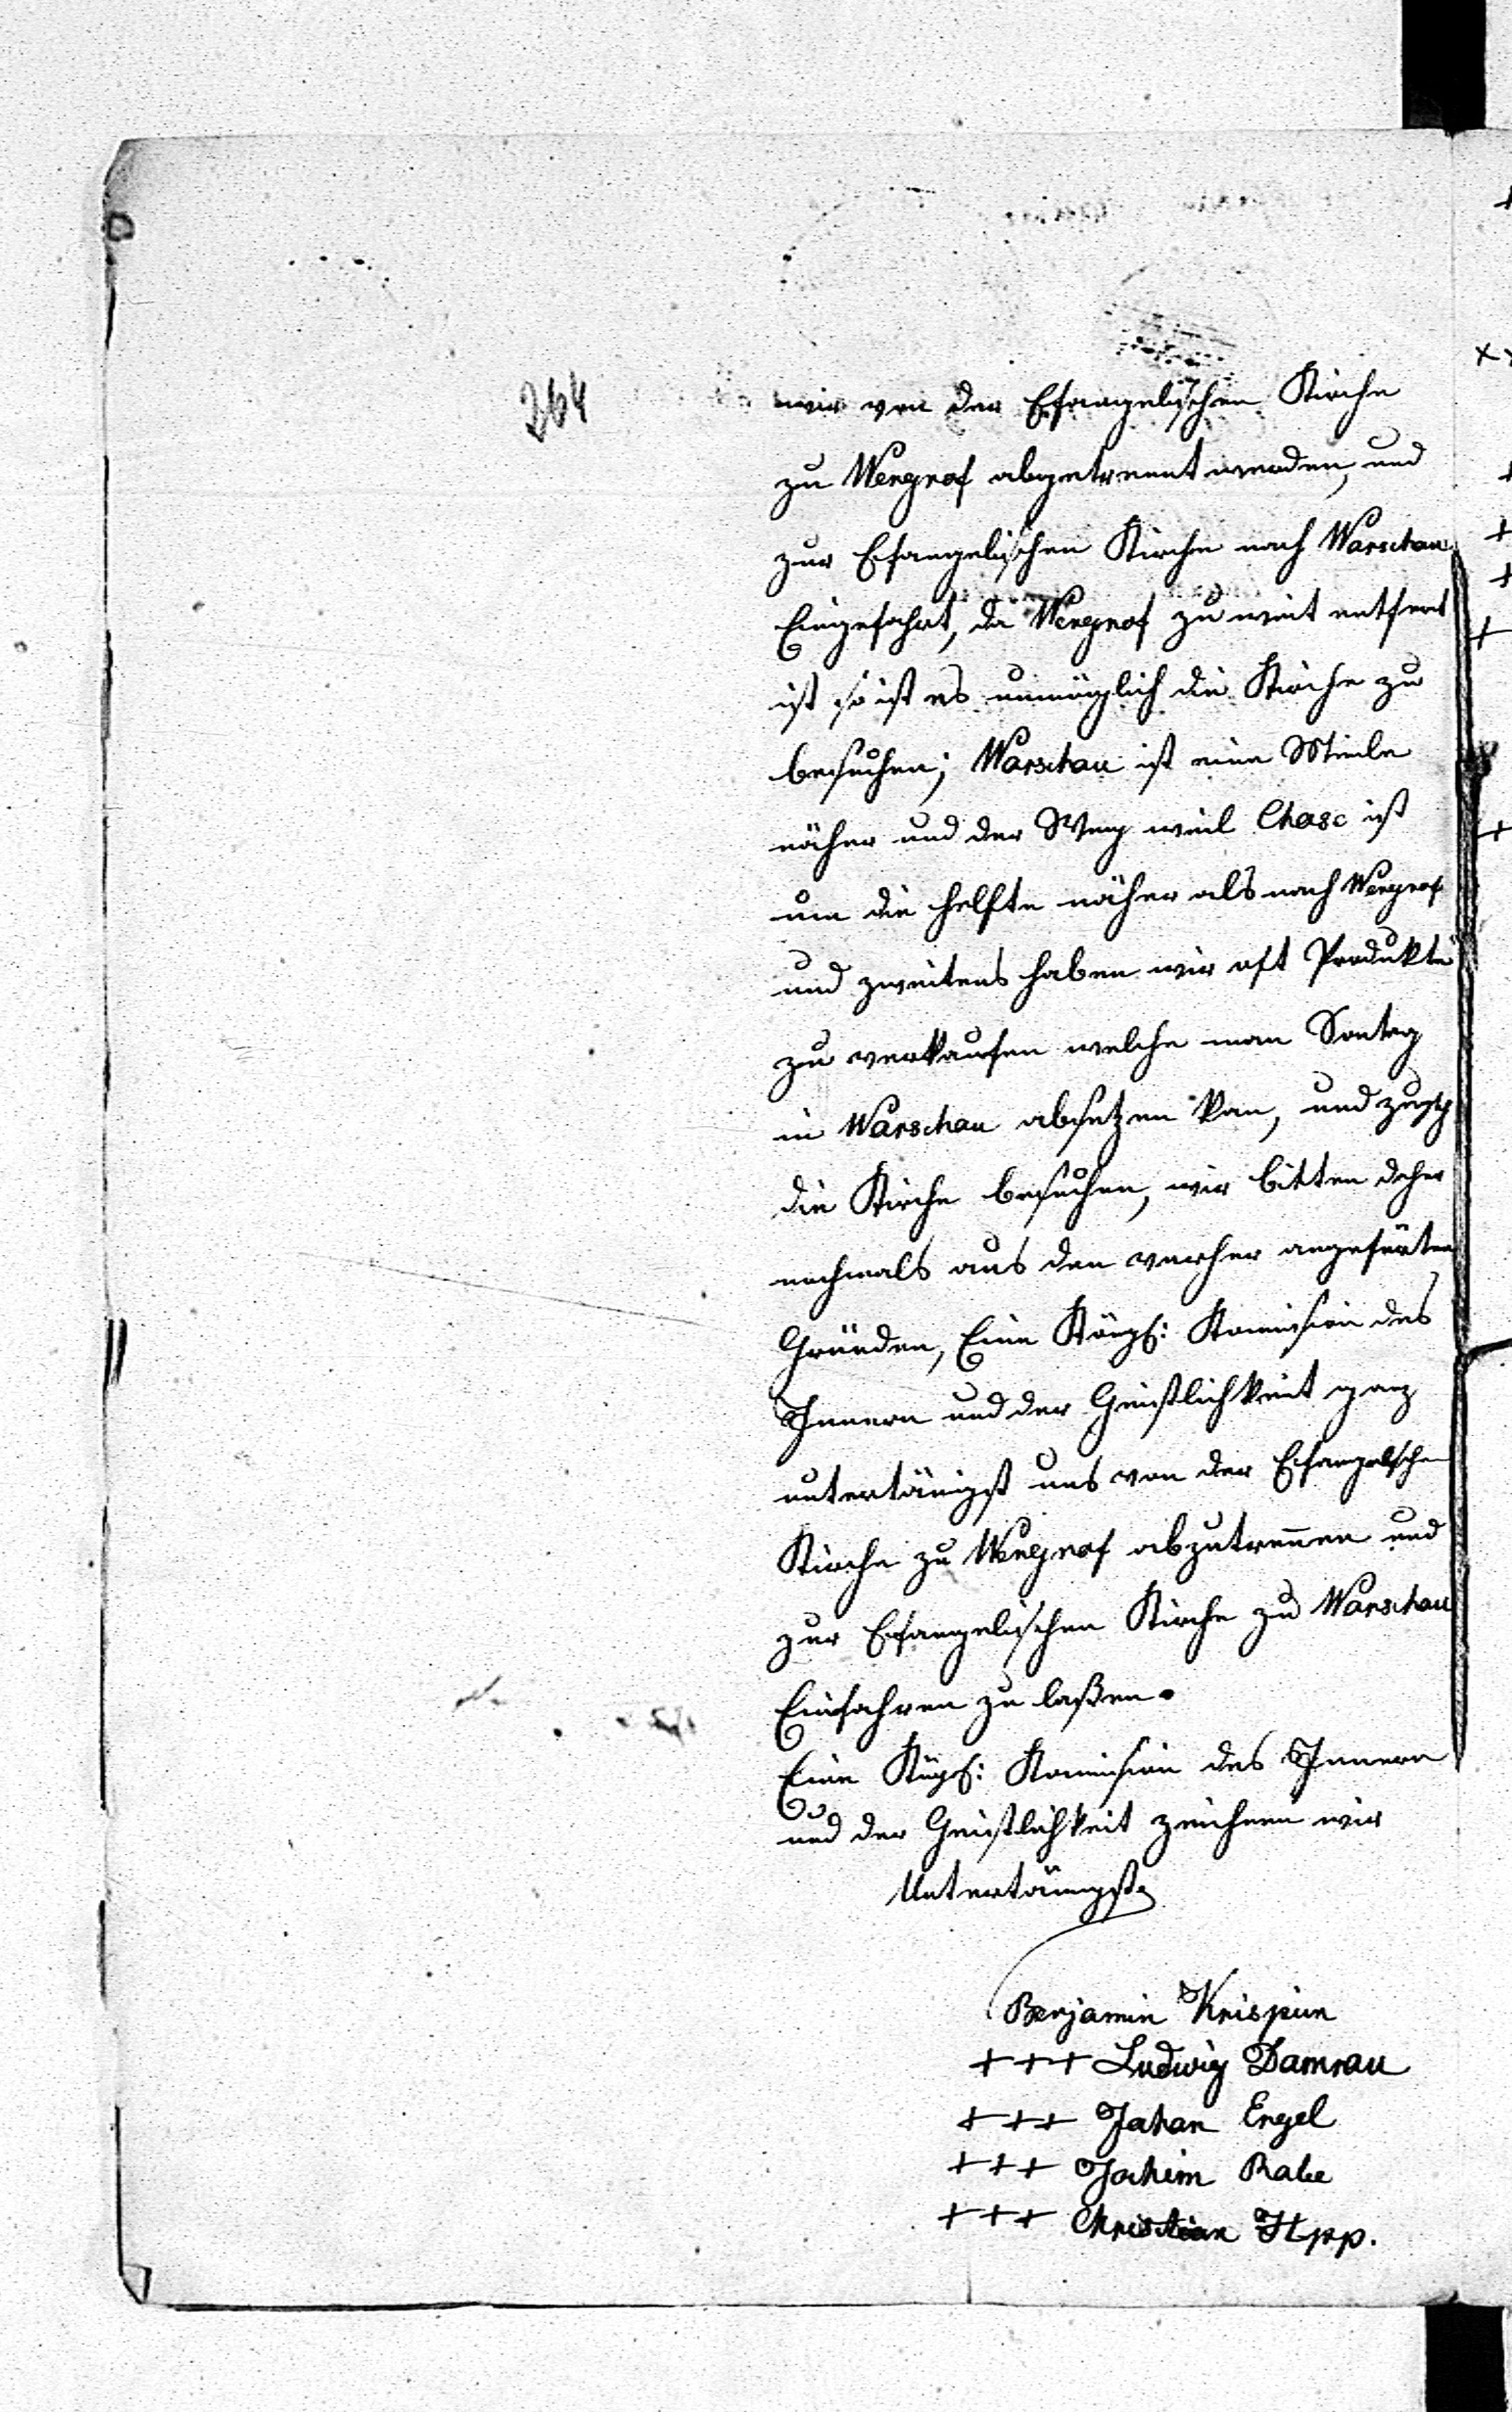 264
wir von der Efangelischen Kirche
zu Wengrof abgetrent werden, und
zur Efangelischen Kirche nach Warschau
Eingefahrt, da Wengrof zu weit entfernt
ist so ist es unmöglich die Kirche zu
besuchen; Warschau ist eine Meile
näher und der Weg weil Chase ist
um die helfte näher als nach Wengrof
und zweitens haben wir oft Produkte
zu verkaufen welche man Sontag
in Warschau absetzen kan, und zugl
die Kirche besuchen, wir bitten daher
nochmals aus den vorher angeführten
Gründen, Eine Köngl: Komission des
Innern und der Geistlichkeit ganz
untertänigst uns von der Efangelschen
Kirche zu Wengrof abzutrennen und
zur Efangelischen Kirche zu Warschau
Einfahren zu laßen.
Eine Kngl: Komission des Innern
und der Geistlichkeit zeichnen wir
Untertänigst
Benjamin Krispin
+++ Ludwig Damrau
+++ Johan Engel
+++ Johim Rabe
+++ Christian